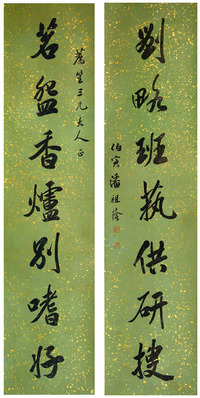 劉略班蓺供研搜
伯寅潘祖蔭
茗盌香爐別嗜好
蔫生三兄大人正